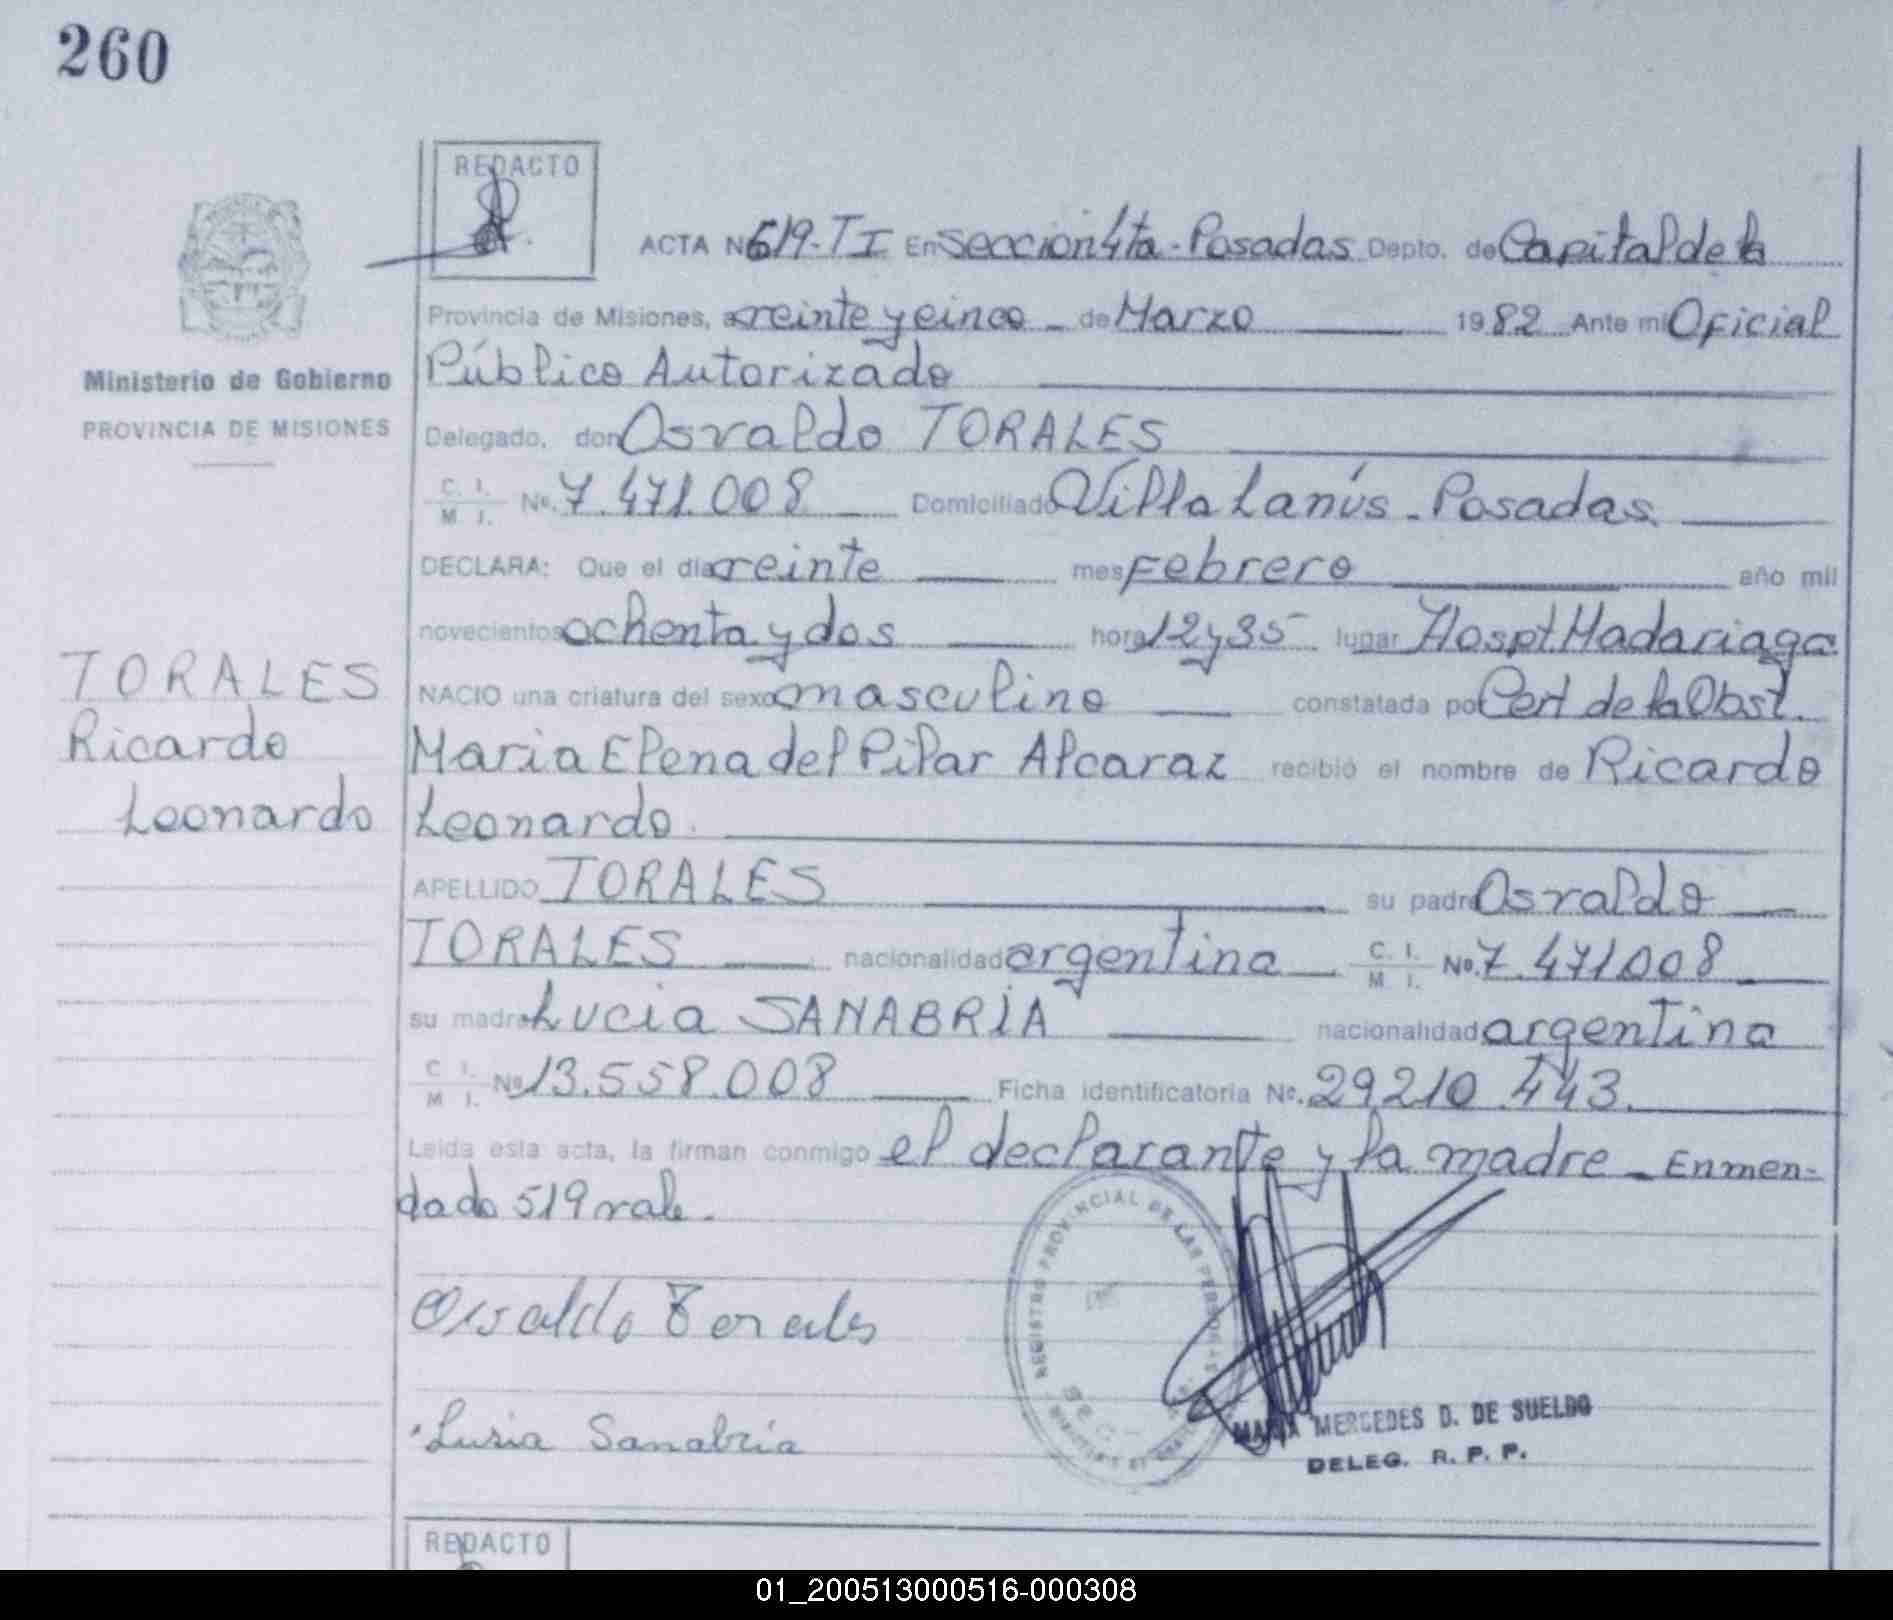 260
REDACTO
ACTA Nº 519-T I En Seccion 4ta - Posadas Depto. de Capital de la
Provincia de Misiones, a veinte y cinco - de Marzo 1982 Ante mi Oficial
Público Autorizado
Ministerio de Gobierno
PROVINCIA DE MISIONES
Delegado, don Osvaldo TORALES
C. I.
M. I.
Nº. 7.471.008 Domiciliado Villa Lanús - Posadas
DECLARA: Que el día veinte mes Febrero año mil
novecientos ochenta y dos hora 12 y 35 lugar Hospt. Madariaga
NACIO una criatura del sexo masculino constatada por Cert de la Obst.
TORALES
Ricardo
Leonardo
Maria Elena del Pilar Alcaraz recibió el nombre de Ricardo
Leonardo.
APELLIDO TORALES su padre Osvaldo
TORALES nacionalidad argentina C. I.
M. I. Nº. 7.471.008
su madre Lucia SANABRIA nacionalidad argentina
C. I.
M. I. Nº 13.558.008 Ficha identificatoria Nº. 29.210.443
Leída esta acta, la firman conmigo el declarante y la madre - Enmen-
dado 519 vale.
REGISTRO PROVINCIAL DE LAS PERSONAS
Osvaldo Torales
Lusia Sanabria
MARIA MERCEDES D. DE SUELDO
DELEG. R. P. P.
REDACTO
01_200513000516-000308